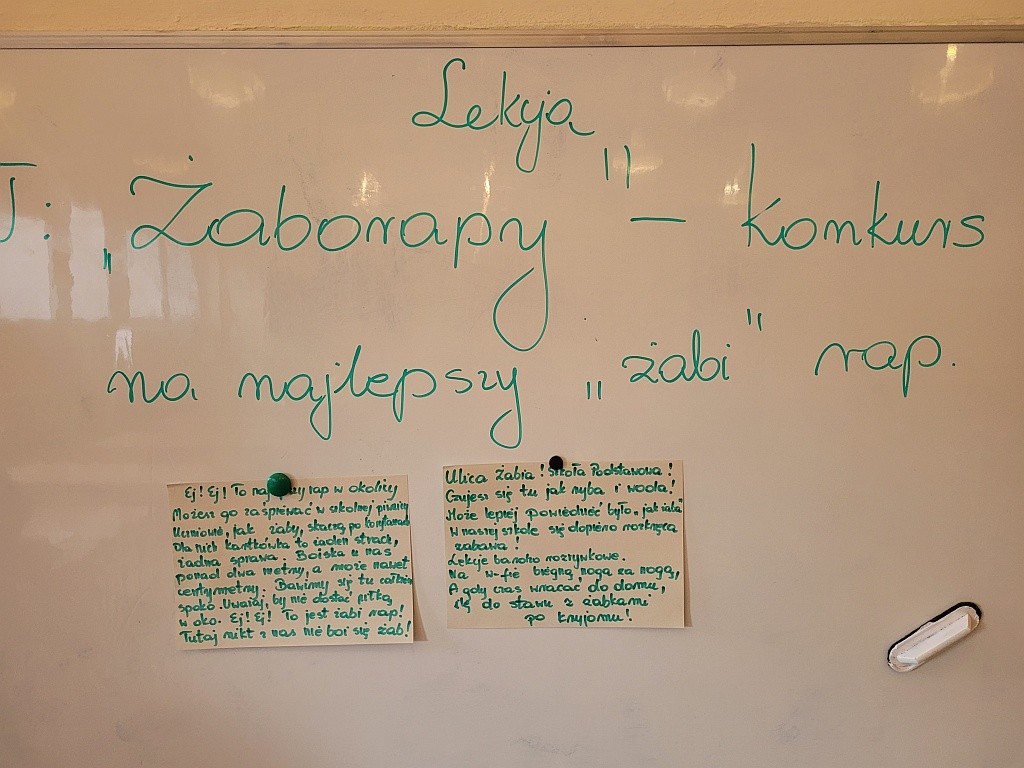 Lekcja
T: „Żaborapy" – konkurs
na najlepszy „żabi" rap.
Ej! Ej! To rap w okolicy
Możesz go zaśpiewać w szkolnej piwnicy
Uczniowie, jak żaby, skaczą po korytarzach
Dla nich kartkówka to żaden strach,
żadna sprawa. Boiska u nas
ponad dwa metry, a może nawet
centymetry. Bawimy się tu całkiem
spoko. Uważaj, by nie dostać piłką
w oko. Ej! Ej! To jest żabi rap!
Tutaj nikt z nas nie boi się żab!
Ulica Żabia! Szkoła Podstawowa!
Czujesz się tu jak ryba i woda!
Może lepiej powiedzieć było „jak żaba"
W naszej szkole się dopiero rozkręca
zabawa!
Lekcje bardzo rozrywkowe.
Na w-fie biegną nogą za nogą,
A gdy czas wracać do domu,
idą do stawu z żabkami
po kryjomu!